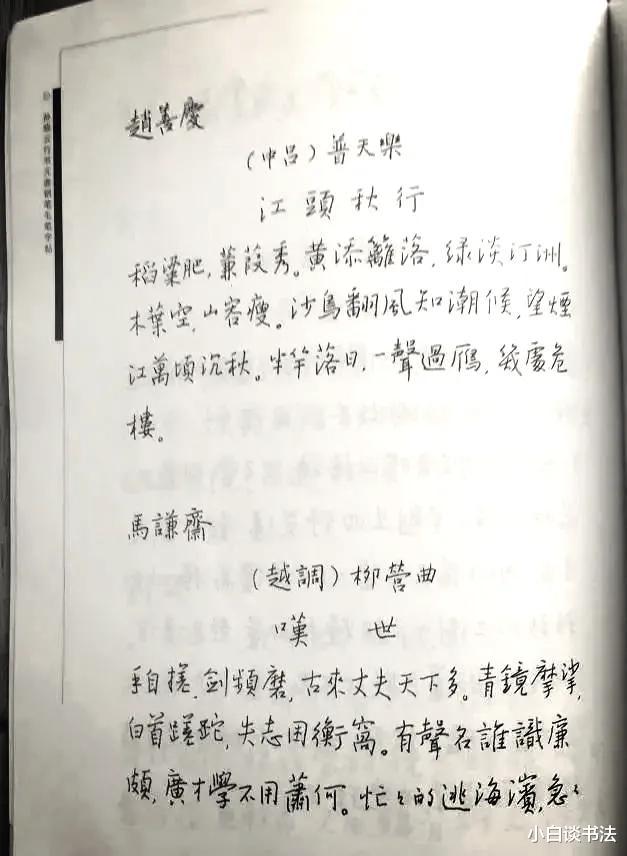 趙善慶
（中呂）普天樂
江頭秋行
稻粱肥，蒹葭秀。黄添籬落，绿淡汀洲。
木葉空，山容瘦。沙鳥翻風知潮候，望煙
江萬頃沉秋。半竿落日，一聲過鴈，幾處危
樓。
馬謙齋
（越調）柳營曲
嘆世
手自搓，剑頻磨，古來丈夫天下多。青鏡摩挲，
白首蹉跎，失志困衡窩。有聲名誰識廉
頗，廣才學不用蕭何。忙々的逃海濱，急々
小白谈书法